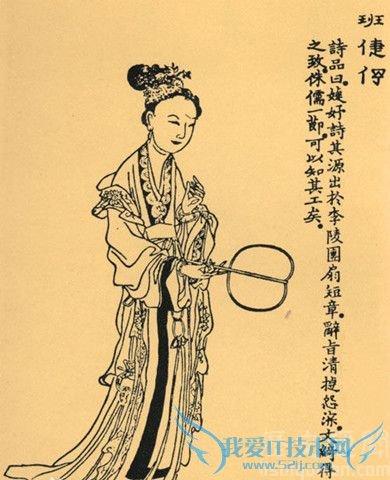 班倢伃
詩品曰。婕妤詩其源出於李陵團扇短章。辭旨清捷。怨深文綺得
之致。侏儒一節。可以知其工矣。
我爱IT技术网
www.52ij.com